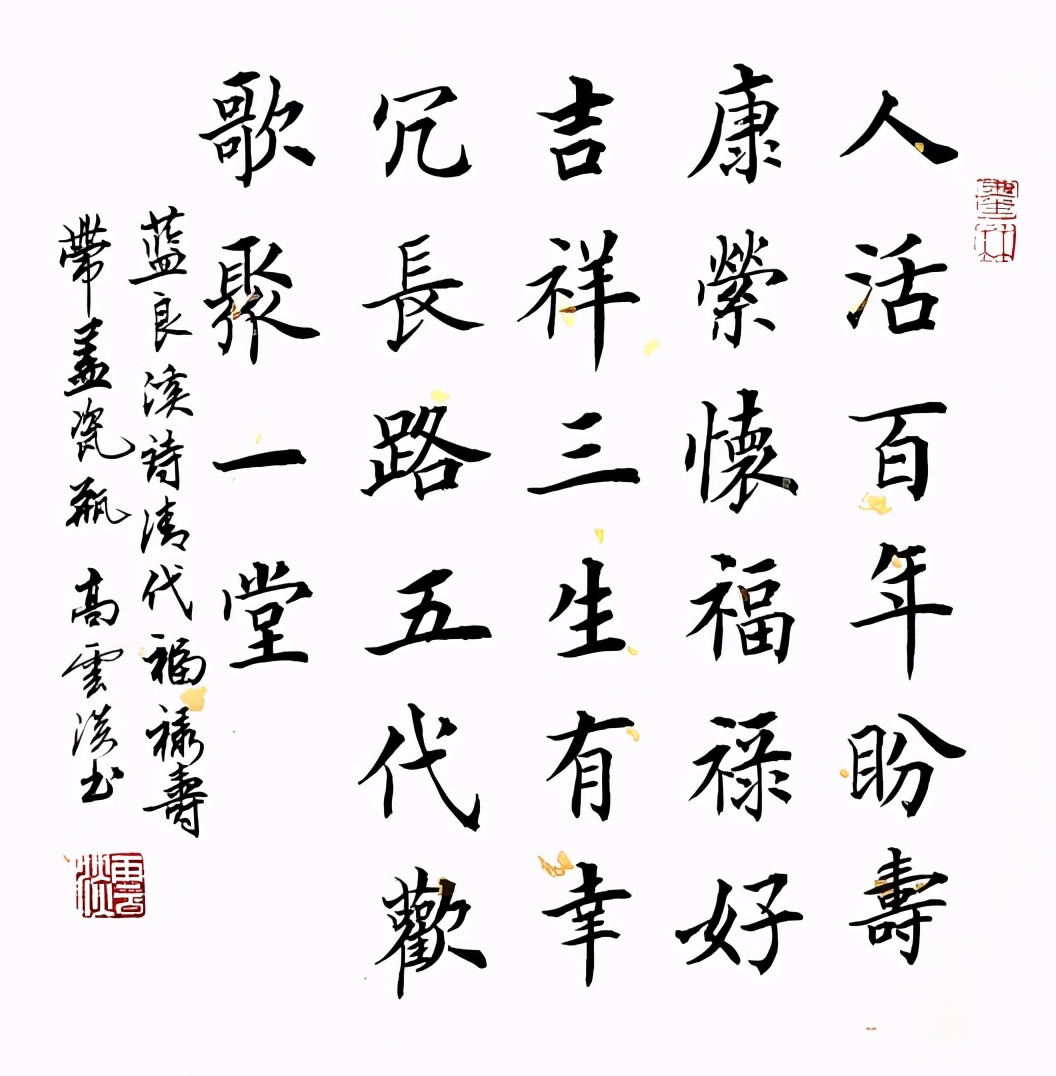 人活百年盼壽
康縈懷福禄好
吉祥三生有幸
冗長路五代歡
歌聚一堂
蓝良溪詩清代福禄壽
帶盖瓷瓶 高雲淡书